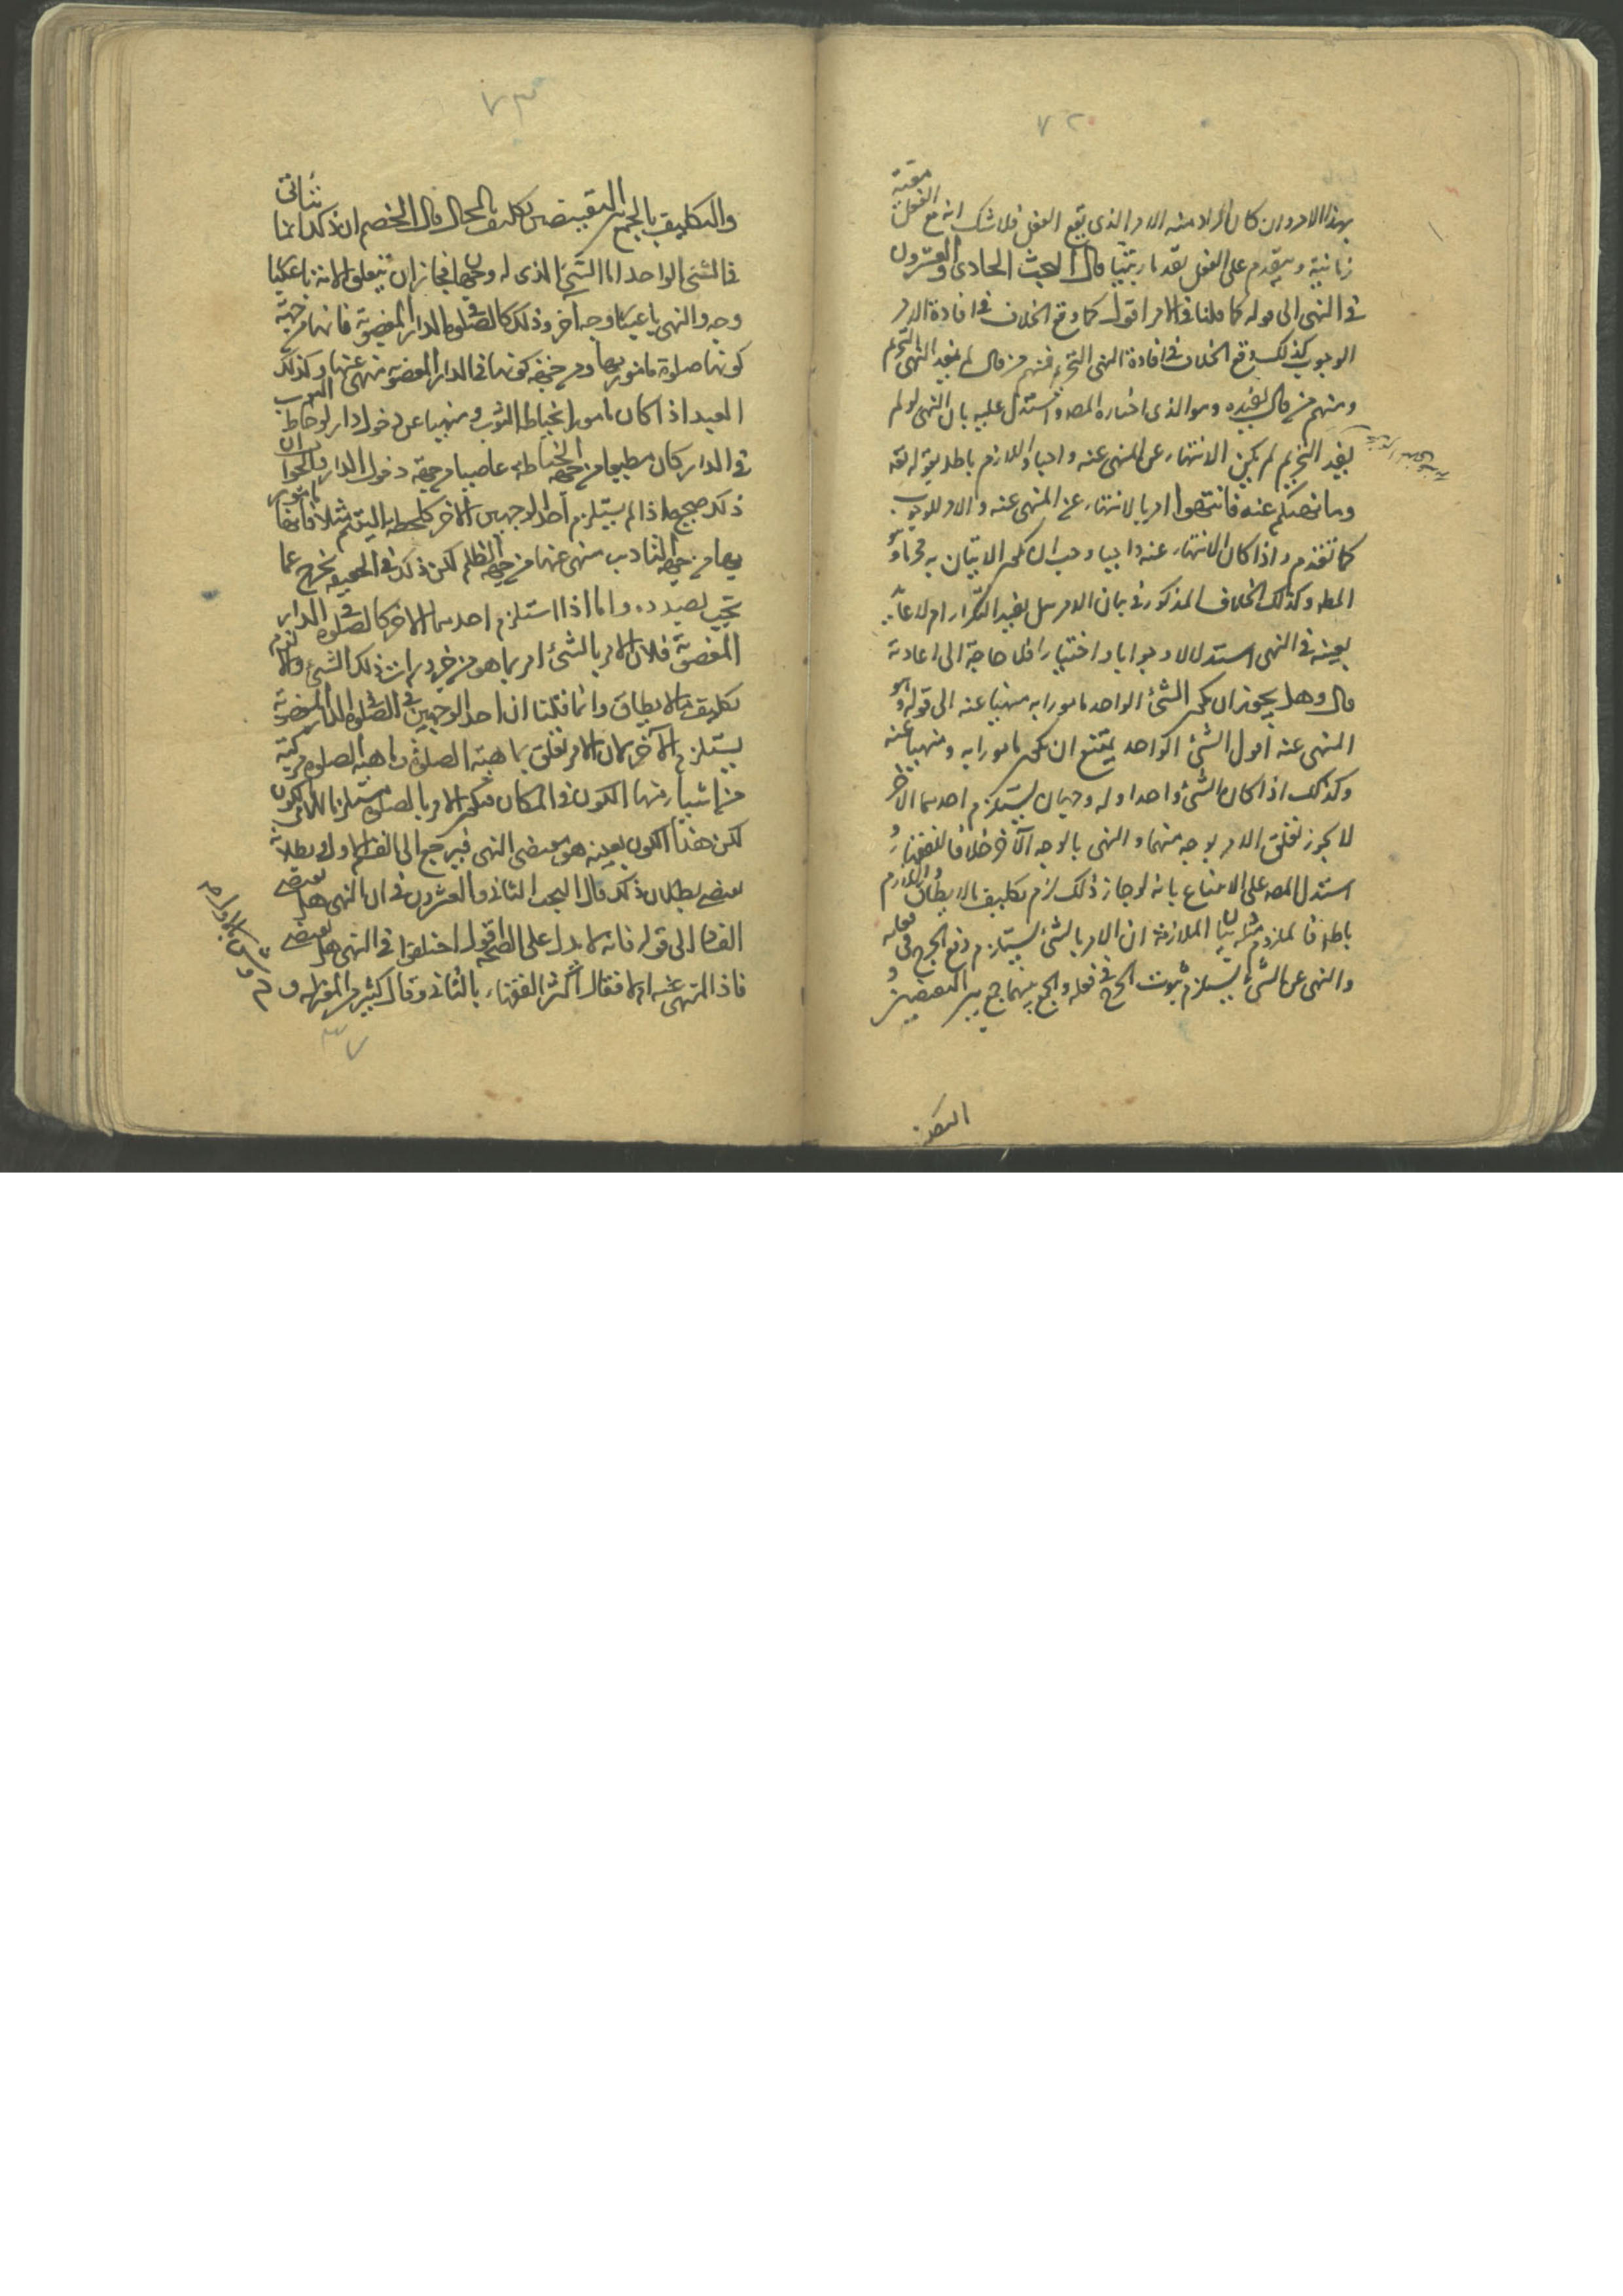 ٧٢
بهذا الامر وان كان المراد منه الامر الذي يقع الفعل فلا شك انه مع الفعل معية
زمانية ويتقدم على الفعل تقدما رتبيا قال البحث الحادي والعشرون
في النهي الى قوله كما قلنا في الامر اقول كما وقع الخلاف في افادة الامر
الوجوب كذلك وقع الخلاف في افادة النهي التحريم فمنهم من قال لم يفيد النهي التحريم
ومنهم من قال يفيده وهو الذي اختاره المصه واستدل عليه بان النهي لو لم
يفيد التحريم لم يكن الانتهاء عن المنهي عنه واجبا واللازم باطل لقوله تعه
وما نهيكم عنه فانتهوا امر بالانتهاء عن المنهي عنه والامر للوجوب
كما تقدم واذا كان الانتهاء عنه واجبا وجب ان يكون الاتيان به محرما وهو
المطه وكذلك الخلاف المذكور في بيان الامر هل يفيد التكرار ام لا جاء
بعينه في النهي استدلالا وجوابا واختيارا فلا حاجة الى اعادته
قال وهل يجوز ان يكون الشئ الواحد مامورا به منهيا عنه الى قوله وهو
المنهي عنه اقول الشئ الواحد يمتنع ان يكون مامورا به ومنهيا عنه
وكذلك اذا كان الشئ واحدا وله وجهان يستلزم احدهما الاخر
لا يجوز تعلق الامر بوجه منهما والنهي بالوجه الآخر خلافا للفقهاء و
استدل المصه على الامتناع بانه لو جاز ذلك لزم تكليف ما لا يطاق واللازم
باطل فالملزوم مثله بيان الملازمة ان الامر بالشئ يستلزم رفع الحرج في فعله
والنهي عن الشئ يستلزم ثبوت الحرج في فعله والجمع بينهما جمع بين النقيضين و
٧٣
والتكليف بالجمع بين النقيضين تكليف بالمحال قال الخصم ان ذلك انما يتأتى
في الشئ الواحد اما الشئ الذي له وجهان فجاز ان يتعلق الامر به باعتبار
وجه والنهي باعتبار وجه آخر وذلك كالصلوة في الدار المغصوبة فانها من جهة
كونها صلوة مامور بها ومن جهة كونها في الدار المغصوبة منهي عنها وكذلك
العبد اذا كان مامورا بخياطة الثوب ومنهيا عن دخول دار لو خاط الثوب
في الدار كان مطيعا من جهة الخياطة عاصيا من جهة دخول الدار والجواب ان
ذلك صحيح اذا لم يستلزم احد الوجهين الآخر كلطمة اليتيم مثلا فانها مامور
بها من جهة التاديب منهي عنها من جهة الظلم لكن ذلك في الحقيقة يخرج عما
نحن بصدده واما اذا استلزم احدهما الاخر كالصلوة في الدار
المغصوبة فلان الامر بالشئ امر بما هو من ضروريات ذلك الشئ والا لزم
تكليف ما لا يطاق وانما قلنا ان احد الوجهين في الصلوة في الدار المغصوبة
يستلزم الآخر لان الامر تعلق بماهية الصلوة وماهية الصلوة مركبة
من اشياء منها الكون في المكان فيكون الامر بالصلوة مستلزما للامر بالكون
لكن هذا الكون بعينه هو مقتضى النهي فيرجع الى القسم الاول وبطلانه
يقتضي بطلان ذلك قال البحث الثاني والعشرون في ان النهي هل يقتضي
الفساد الى قوله فانه لا يدل على الصحة اقول اختلفوا في النهي هل يقتضي
فساد المنهي عنه ام لا فقال اكثر الفقهاء بالثاني وقال كثير من المعتزلة و
٧٣